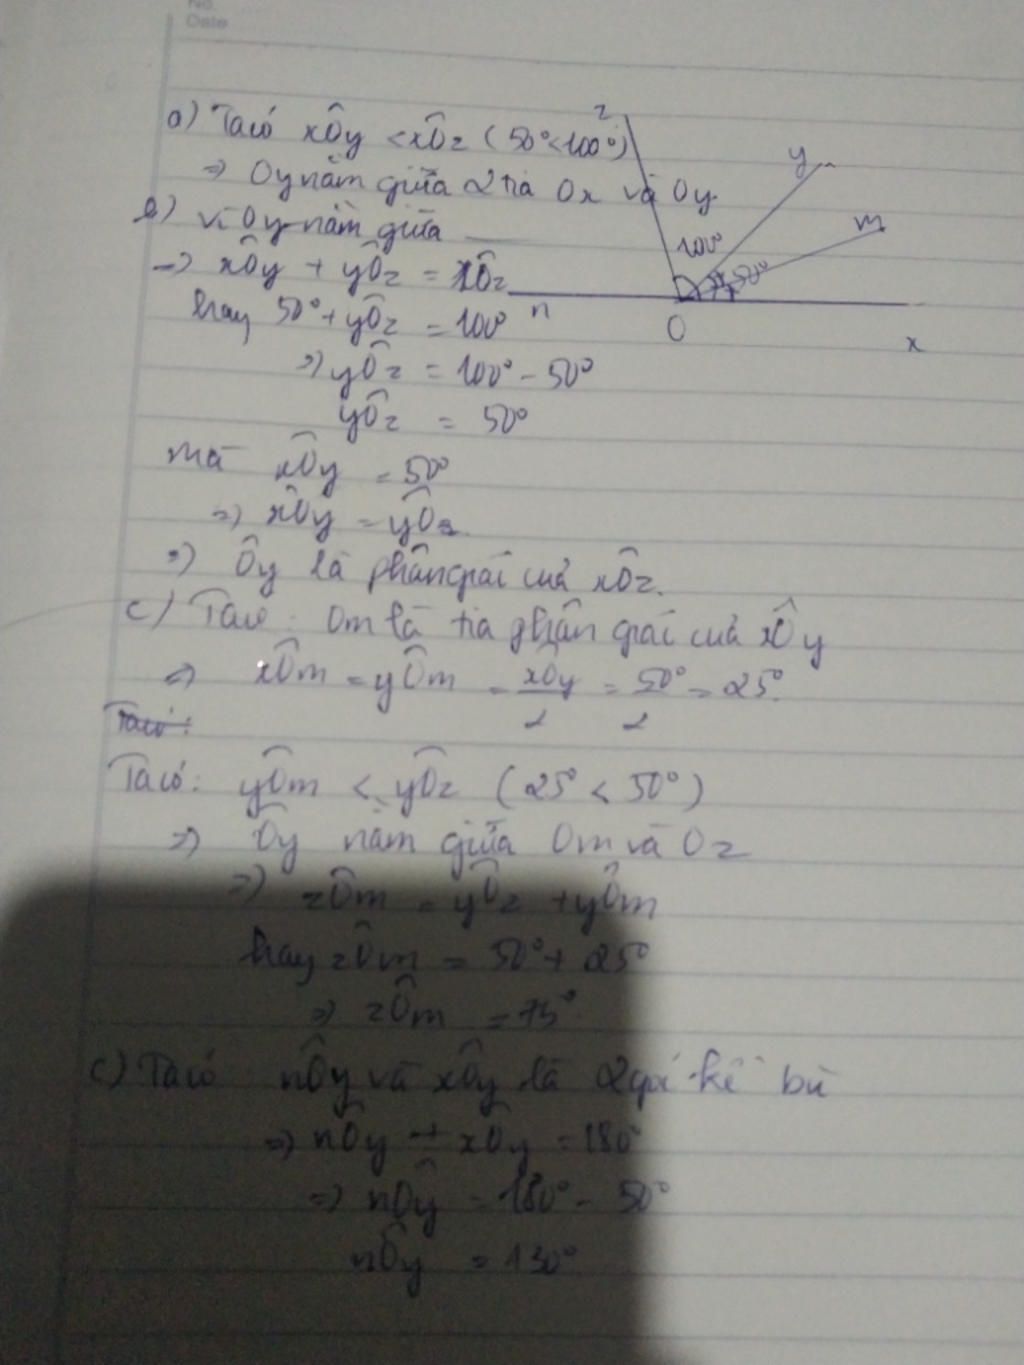 No.
Date
a) Ta có xÔy < xÔz (50° < 100°)
=> Oy nằm giữa 2 tia Ox và Oy.
b) vì Oy nằm giữa
=> xÔy + yÔz = xÔz
hay 50° + yÔz = 100°
=> yÔz = 100° - 50°
yÔz = 50°
mà xÔy = 50°
=> xÔy = yÔz.
=> Ôy là phân giác của xÔz.
c) Ta có: Om là tia phân giác của xÔy
=> xÔm = yÔm = xÔy/2 = 50°/2 = 25°.
Ta có:
Ta có: yÔm < yÔz (25° < 50°)
=> Ôy nằm giữa Om và Oz
=> zÔm = yÔz + yÔm
hay zÔm = 50° + 25°
=> zÔm = 75°
c) Ta có nÔy và xÔy là 2 góc kề bù
=> nÔy + xÔy = 180°
=> nÔy = 180° - 50°
nÔy = 130°
z
y
m
100°
50°
n
O
x